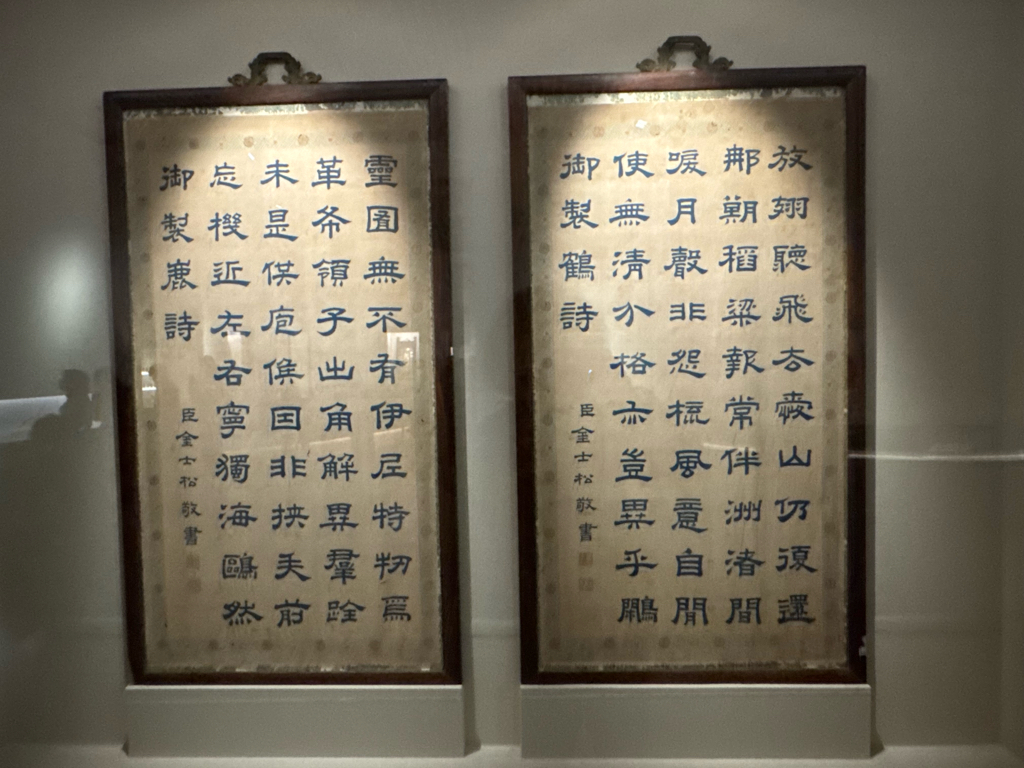 放翎聽飛去山仍復還
那稻粱報常伴洲渚間
唳月聲非怨梳風意自閒
使無清介格亦豈異乎鷳
御製鶴詩
臣金士松敬書
靈囿無不有伊尼特牣爲
革領子出角解異羣跧
未是供庖俟因非挾矢前
忘機近左右寧獨海鷗然
御製鹿詩
臣金士松敬書